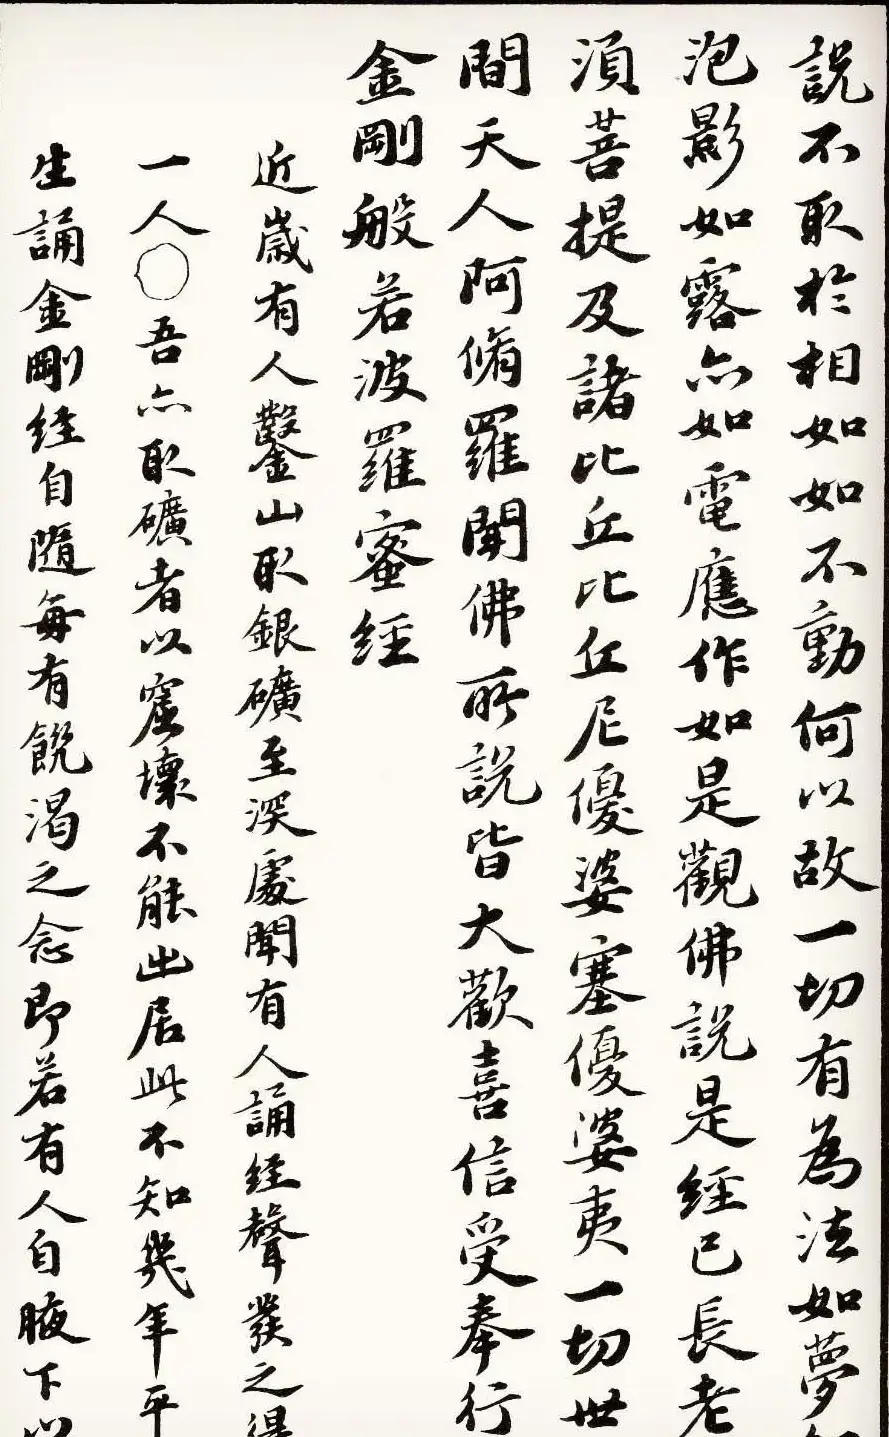 說不取於相如如不動何以故一切有為法如夢
泡影如露亦如電應作如是觀佛說是經已長老
須菩提及諸比丘比丘尼優婆塞優婆夷一切世
間天人阿脩羅聞佛所說皆大歡喜信受奉行
金剛般若波羅蜜經
近歲有人鑿山取銀礦至深處聞有人誦經聲發之得
一人吾亦取礦者以窟壞不能出居此不知幾年平
生誦金剛經自隨每有飢渴之念即若有人自腋下以